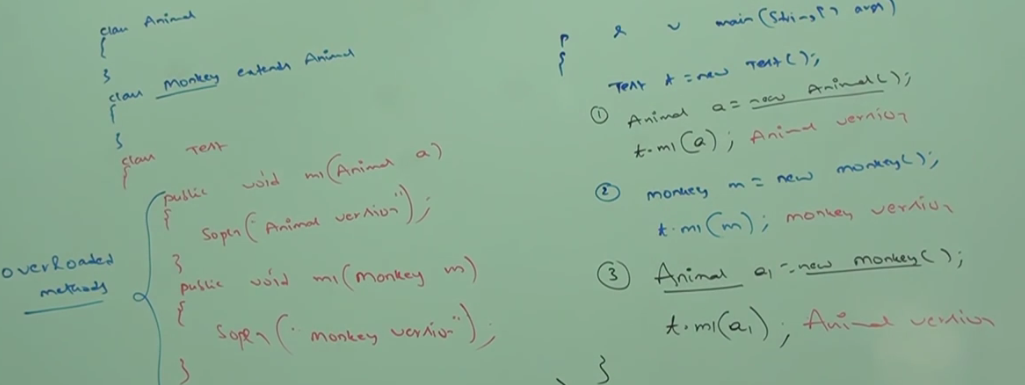 class Animal
{
}
class Monkey extends Animal
{
}
class Test
{
public void m1(Animal a)
{
Sopln("Animal version");
}
public void m1(Monkey m)
{
Sopln("monkey version");
}
overloaded
methods
p s v main(String[] args)
{
Test t = new Test();
① Animal a = new Animal();
t.m1(a); Animal version
② monkey m = new monkey();
t.m1(m); monkey version
③ Animal a1 = new monkey();
t.m1(a1); Animal version
}